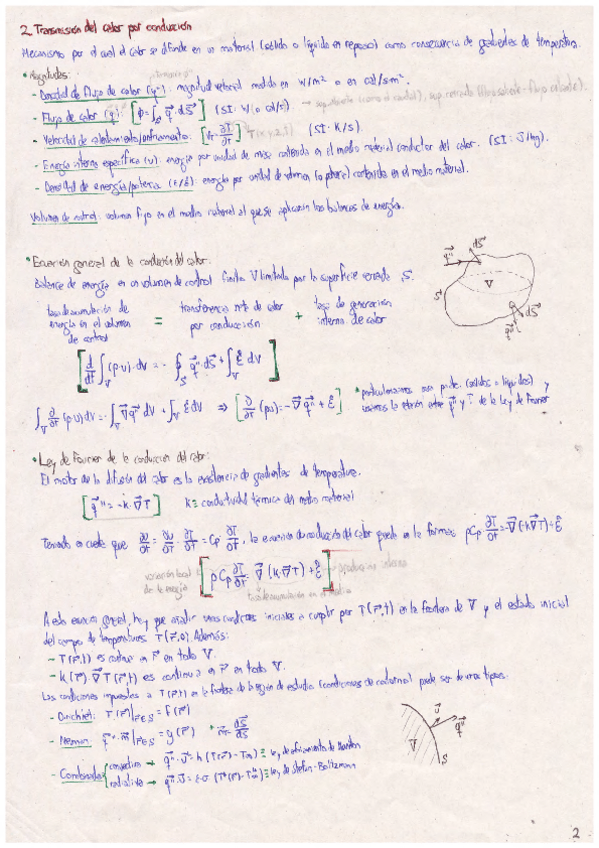 2. Transmisión del calor por conducción
Mecanismo por el cual el calor se difunde en un material (sólido o líquido en reposo) como consecuencia de gradientes de temperatura.
• Magnitudes:
- Densidad de flujo de calor (q''): magnitud vectorial medido en W/m² o en cal/s·m².
- Flujo de calor (q): [ϕ = ∫s q⃗''·dS⃗] (SI: W / o cal/s)
- Velocidad de calentamiento/enfriamiento: [ = ∂T/∂t] T(x,y,z,t) (SI: K/s).
- Energía interna específica (u): energía por unidad de masa contenida en el medio material conductor del calor. (SI: J/kg).
- Densidad de energía/potencia (ε/ε̇): energía por unidad de volumen (o potencia) contenida en el medio material.
Volumen de control: volumen fijo en el medio material al que se aplicarán los balances de energía.
• Ecuación general de la conducción del calor:
Balance de energía en un volumen de control finito V limitado por la superficie cerrada S.
tasa de acumulación de energía en el volumen de control = transferencia neta de calor por conducción + tasa de generación interna de calor
[d/dt ∫v (ρ·u)·dV = - ∮s q⃗''·dS⃗ + ∫v ε̇ dV]
∫v ∂/∂t (ρ·u) dV = -∫v ∇⃗q⃗'' dV + ∫v ε̇ dV ⇒ [∂/∂t (ρu) = -∇⃗q⃗'' + ε̇]
• particularizamos (sólidos o líquidos) y
usaremos la relación entre q⃗'' y T de la Ley de Fourier
q⃗'' dS⃗ V S q⃗'' dS⃗
• Ley de Fourier de la conducción del calor:
El motor de la difusión del calor es la existencia de gradientes de temperatura.
[q⃗'' = -k·∇⃗T] k ≡ conductividad térmica del medio material
Teniendo en cuenta que ∂u/∂t = ∂u/∂T · ∂T/∂t = Cp ∂T/∂t, la ecuación de conducción del calor queda en la forma: ρCp ∂T/∂t = -∇⃗(-k∇⃗T) + ε̇
variación local de la energía [ρCp ∂T/∂t = ∇⃗(k·∇⃗T) + ε̇] generación interna
tasa de acumulación en el medio
A esta ecuación general, hay que añadir unas condiciones iniciales a cumplir por T(r⃗,t) en la frontera de V y el estado inicial
del campo de temperaturas T(r⃗,0). Además:
- T(r⃗,t) es continua en r⃗ en todo V.
- k(r⃗)·∇⃗T(r⃗,t) es continua en r⃗ en todo V.
Las condiciones impuestas a T(r⃗,t) en la frontera de la región de estudio (condiciones de contorno) puede ser de varios tipos:
- Dirichlet: T(r⃗)|r∈S = f(r⃗)
- Neumann: q⃗''·n⃗|r∈S = g(r⃗) * n⃗ = dS⃗/dS
- Combinadas convectivo → q⃗''·ν⃗ = h(T(r⃗) - T∞) ≡ ley de enfriamiento de Newton
radiativo → q⃗''·ν⃗ = ε·σ(T⁴(r⃗) - T∞⁴) ≡ ley de Stefan-Boltzmann
V ν⃗ q⃗'' S
2